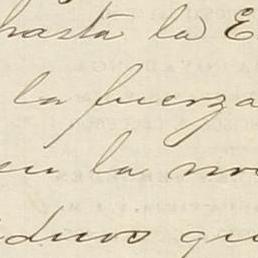 hasta la E
la fuerza
en la no
duvo qu